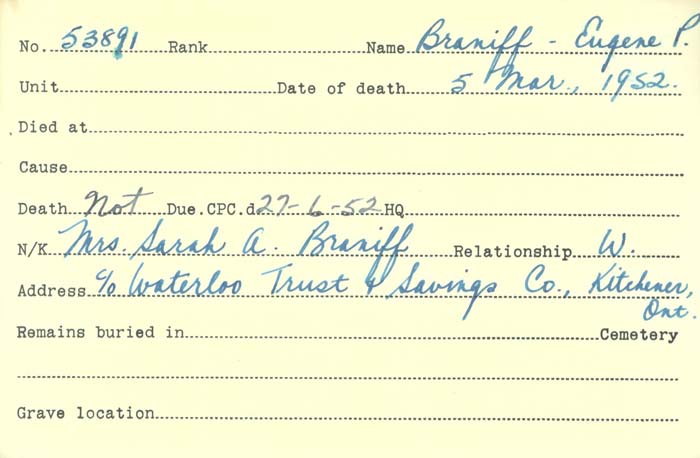 No. 53891 Rank Name Braniff - Eugene P.
Unit Date of death 5 Mar., 1952.
Died at
Cause
Death Not Due.CPC.d 27-6-52 HQ
N/K Mrs. Sarah A. Braniff Relationship W.
Address c/o Waterloo Trust & Savings Co., Kitchener,
Ont.
Remains buried in Cemetery
Grave location